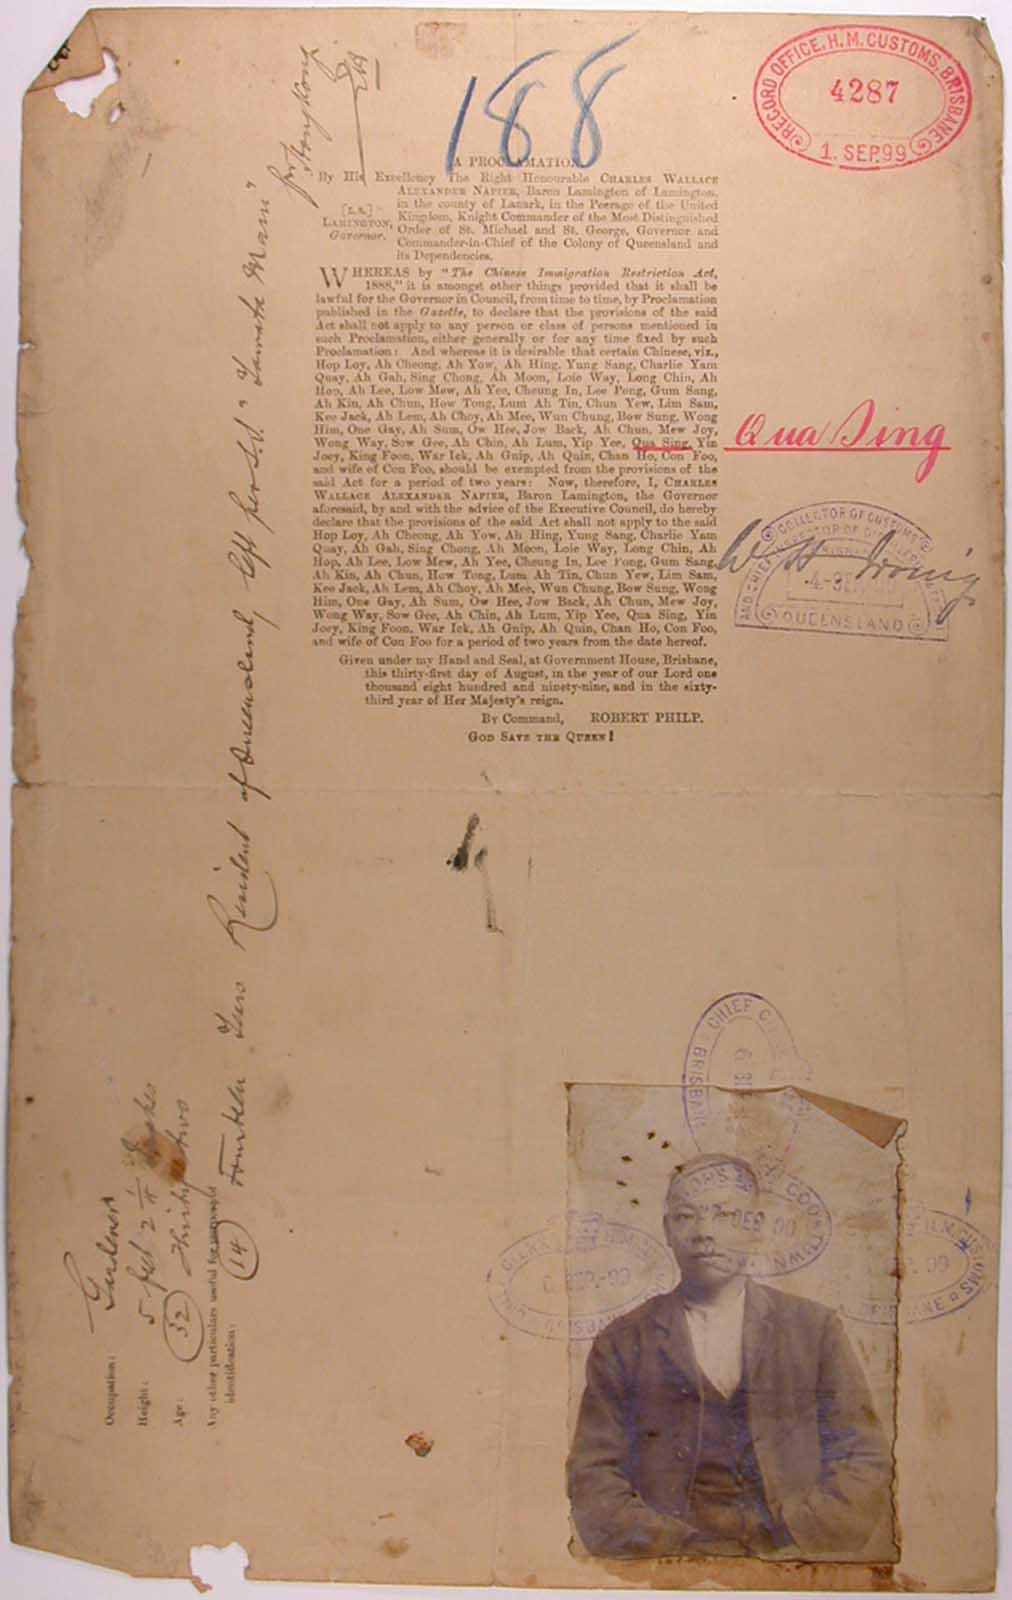 188
RECORD OFFICE, H. M. CUSTOMS, BRISBANE
4287
1. SEP. 99
A PROCLAMATION
By His Excellency The Right Honourable CHARLES WALLACE
ALEXANDER NAPIER, Baron Lamington of Lamington,
in the county of Lanark, in the Peerage of the United
Kingdom, Knight Commander of the Most Distinguished
Order of St. Michael and St. George, Governor and
Commander-in-Chief of the Colony of Queensland and
its Dependencies.
[L.S.]
LAMINGTON,
Governor.
WHEREAS by "The Chinese Immigration Restriction Act,
1888," it is amongst other things provided that it shall be
lawful for the Governor in Council, from time to time, by Proclamation
published in the Gazette, to declare that the provisions of the said
Act shall not apply to any person or class of persons mentioned in
such Proclamation, either generally or for any time fixed by such
Proclamation: And whereas it is desirable that certain Chinese, viz.,
Hop Loy, Ah Cheong, Ah Yow, Ah Hing, Yung Sang, Charlie Yam
Quay, Ah Gah, Sing Chong, Ah Moon, Loie Way, Long Chin, Ah
Hop, Ah Lee, Low Mew, Ah Yee, Cheung In, Lee Pong, Gum Sang,
Ah Kin, Ah Chun, How Tong, Lum Ah Tin, Chun Yew, Lim Sam,
Kee Jack, Ah Lem, Ah Choy, Ah Mee, Wun Chung, Bow Sung, Wong
Him, One Gay, Ah Sum, Ow Hee, Jow Back, Ah Chun, Mew Joy,
Wong Way, Sow Gee, Ah Chin, Ah Lum, Yip Yee, Qua Sing, Yin
Joey, King Foon, War Ick, Ah Gnip, Ah Quin, Chan Ho, Con Foo,
and wife of Con Foo, should be exempted from the provisions of the
said Act for a period of two years: Now, therefore, I, CHARLES
WALLACE ALEXANDER NAPIER, Baron Lamington, the Governor
aforesaid, by and with the advice of the Executive Council, do hereby
declare that the provisions of the said Act shall not apply to the said
Hop Loy, Ah Cheong, Ah Yow, Ah Hing, Yung Sang, Charlie Yam
Quay, Ah Gah, Sing Chong, Ah Moon, Loie Way, Long Chin, Ah
Hop, Ah Lee, Low Mew, Ah Yee, Cheung In, Lee Pong, Gum Sang,
Ah Kin, Ah Chun, How Tong, Lum Ah Tin, Chun Yew, Lim Sam,
Kee Jack, Ah Lem, Ah Choy, Ah Mee, Wun Chung, Bow Sung, Wong
Him, One Gay, Ah Sum, Ow Hee, Jow Back, Ah Chun, Mew Joy,
Wong Way, Sow Gee, Ah Chin, Ah Lum, Yip Yee, Qua Sing, Yin
Joey, King Foon, War Ick, Ah Gnip, Ah Quin, Chan Ho, Con Foo,
and wife of Con Foo for a period of two years from the date hereof.
Given under my Hand and Seal, at Government House, Brisbane,
this thirty-first day of August, in the year of our Lord one
thousand eight hundred and ninety-nine, and in the sixty-
third year of Her Majesty's reign.
By Command, ROBERT PHILP.
GOD SAVE THE QUEEN!
Qua Sing
COLLECTOR OF CUSTOMS
AND CHIEF INSPECTOR OF
QUEENSLAND
W H Irving
Occupation: Gardener
Height: 5 feet 2 Inches
Age: (32) Thirty two
Any other particulars useful for
identification:
(14) Fourteen Years Resident of Queensland, left per S.S. "Yawata Maru"
for Hong Kong
CHIEF
BRISBANE
COOKTOWN
DEC 00
H.M. CUSTOMS
BRISBANE